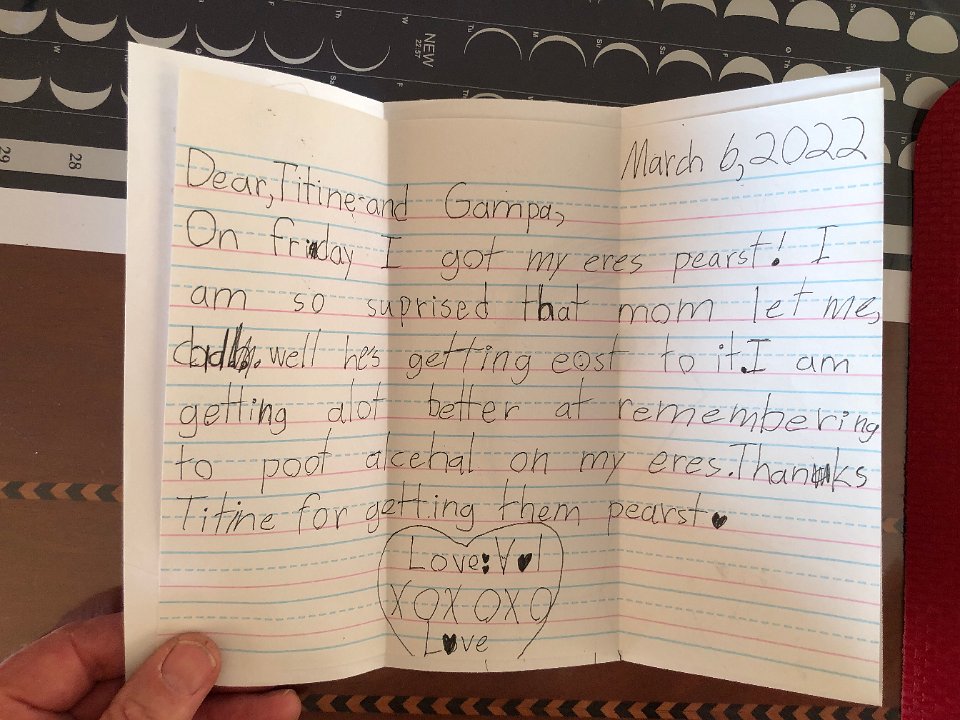 NEW
22:57
29
28
March 6, 2022
Dear, Titine and Gampa,
On friday I got my eres pearst! I
am so suprised that mom let me,
well he's getting eost to it. I am
getting alot better at remembering
to poot alcehal on my eres. Thanks
Titine for getting them pearst♥
Love: V♥l
XOXOXO
L♥ve